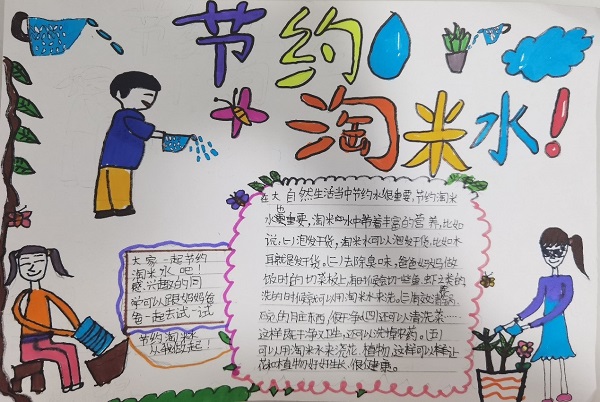 节约
淘米水!
在大自然生活当中节约水很重要,节约淘米
水也重要,淘米水中带着丰富的营养,比如
说,(一)泡发干货,淘米水可以泡发干货,比如木
耳就是发干货。(二)去除臭味,爸爸妈妈做
饭时的切菜板上,有时候会切一些鱼、虾之类的
洗的时候就可以用淘米水来洗。(三)
碗的用脏东西,很干净(四)还可以清洗菜……
这样既干净又卫生,还可以洗悔农药。(五)
可以用淘米水来浇花、植物,这样可以让
花和植物好好生长,很健康。
大家一起节约
淘米水吧!
感兴趣的同
学可以跟妈妈爸
爸一起去试一试
节约淘米水
从我做起!